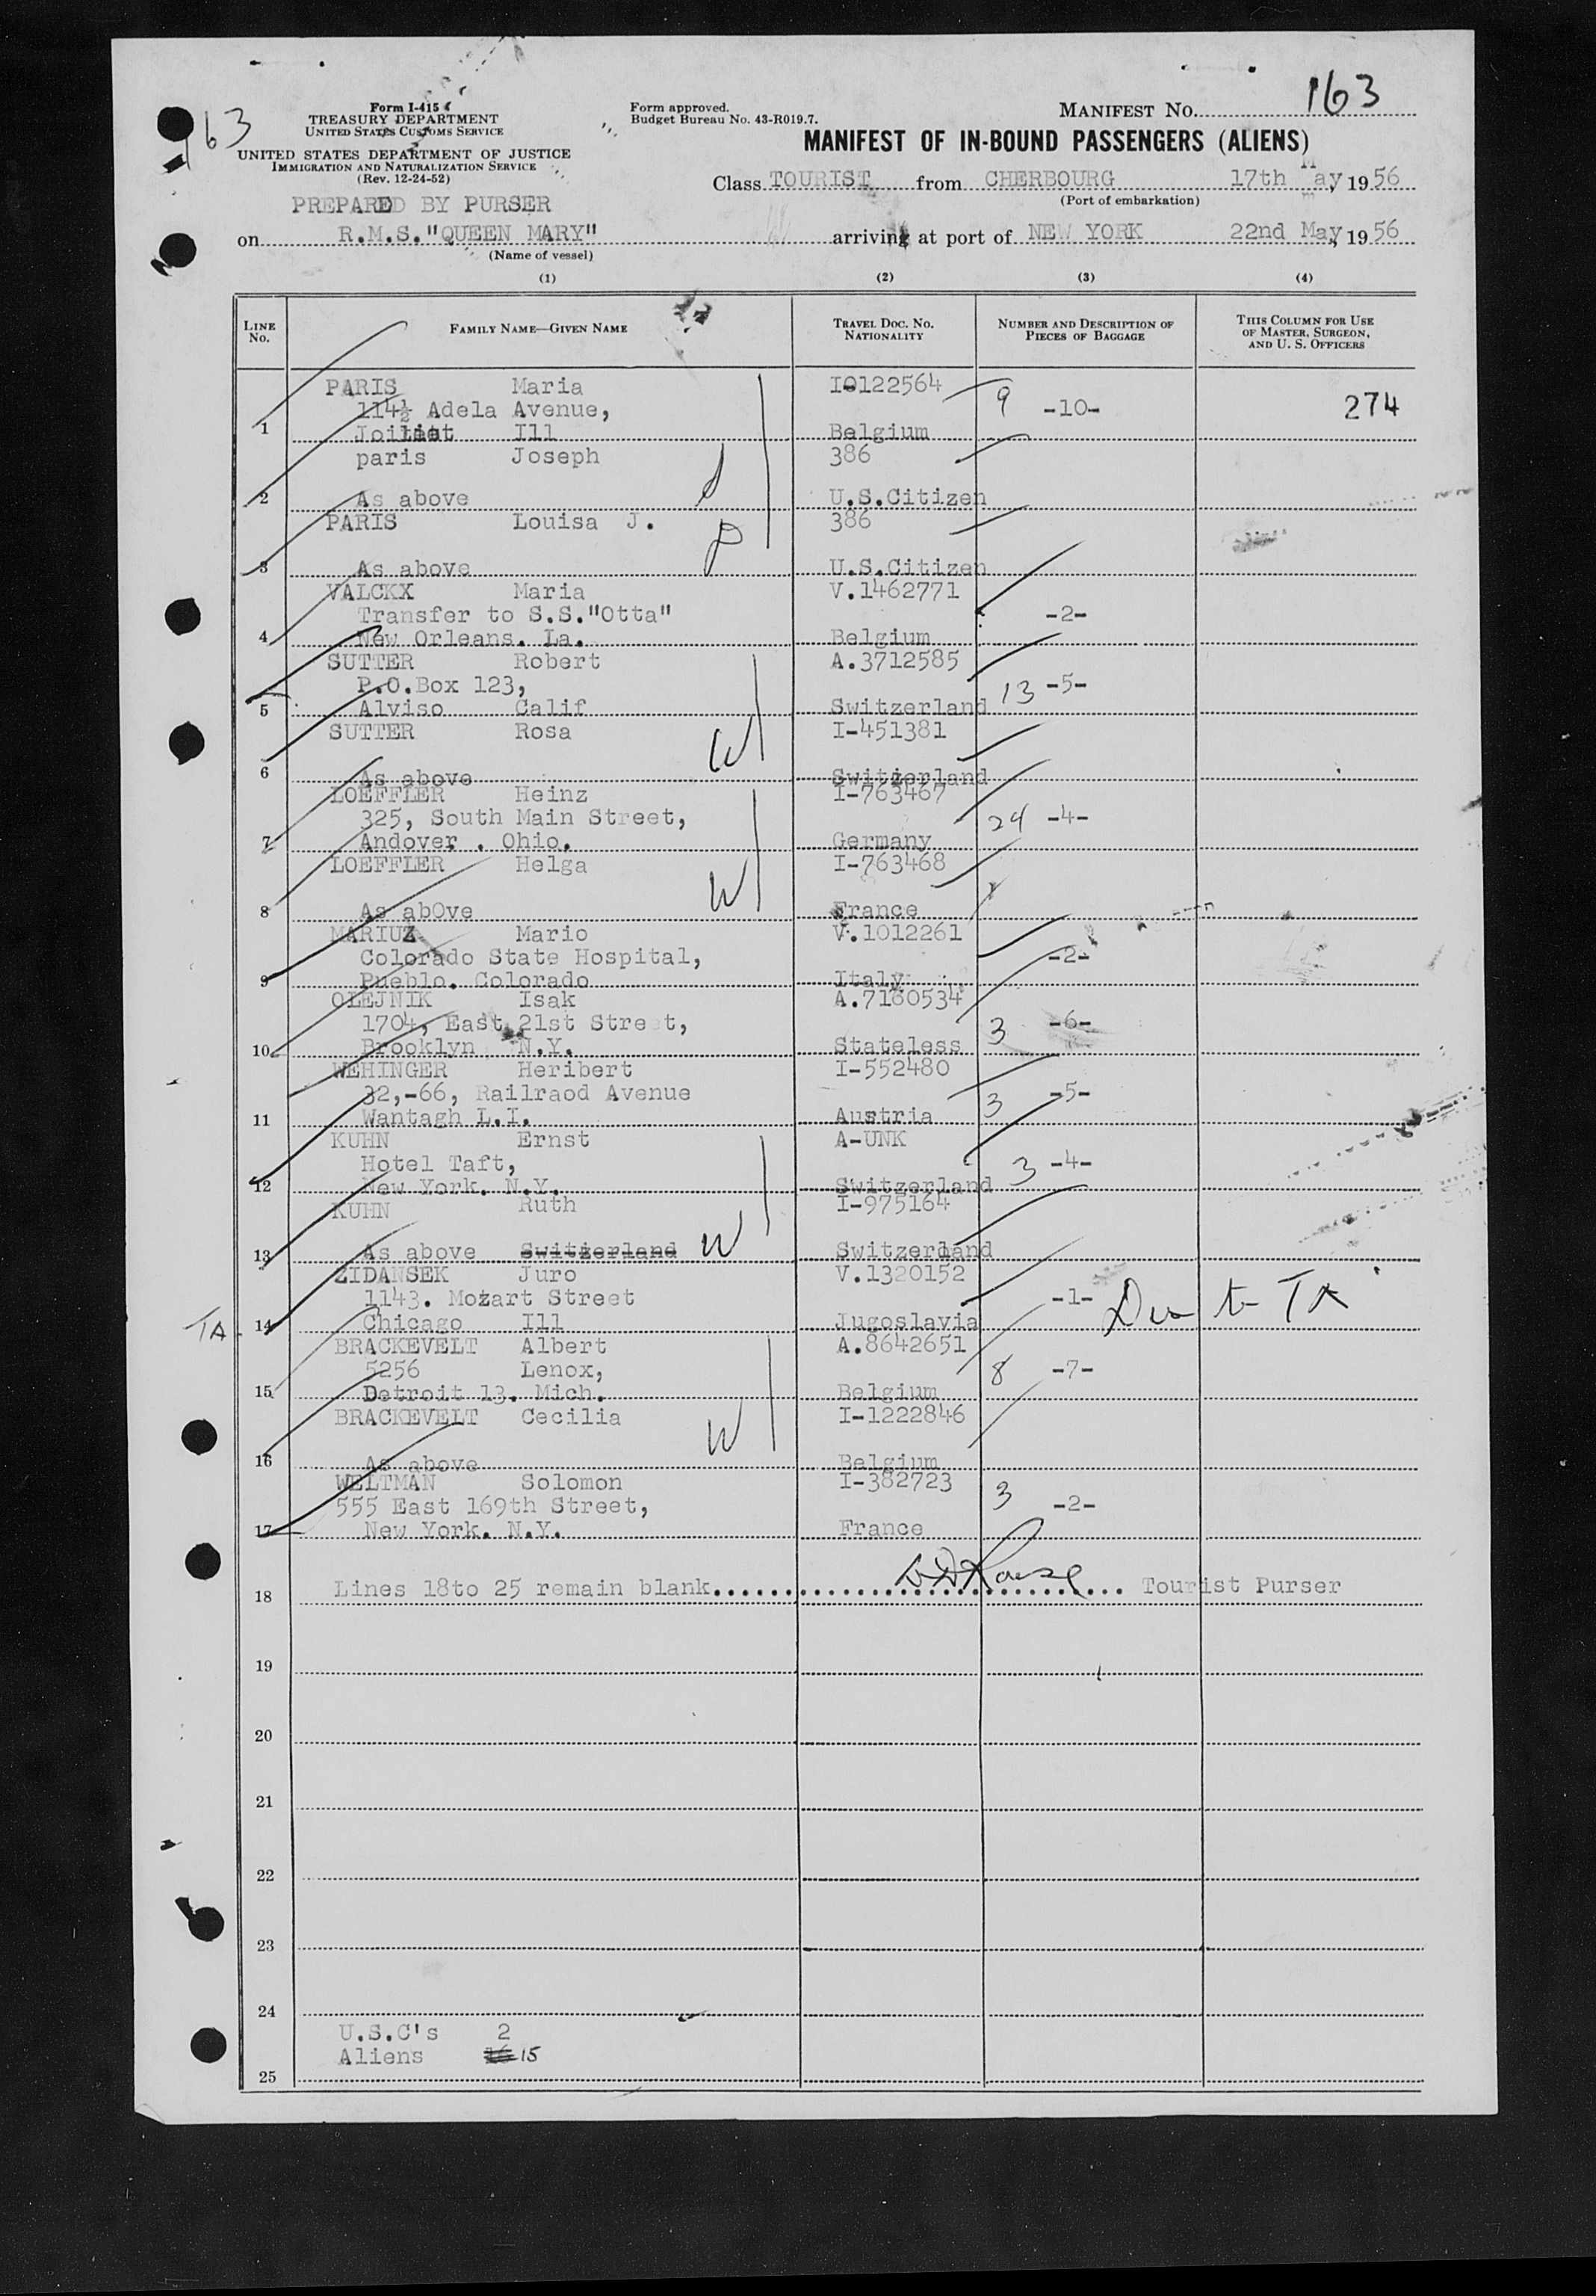 163
Form I-415
TREASURY DEPARTMENT
UNITED STATES CUSTOMS SERVICE
UNITED STATES DEPARTMENT OF JUSTICE
IMMIGRATION AND NATURALIZATION SERVICE
(Rev. 12-24-52)
PREPARED BY PURSER
Form approved.
Budget Bureau No. 43-R019.7.
MANIFEST No. 163
MANIFEST OF IN-BOUND PASSENGERS (ALIENS)
Class TOURIST from CHERBOURG 17th May, 1956
(Port of embarkation)
on R.M.S. "QUEEN MARY" arriving at port of NEW YORK 22nd May, 1956
(Name of vessel)
(1) (2) (3) (4)
LINE No. FAMILY NAME—GIVEN NAME TRAVEL DOC. NO. NATIONALITY NUMBER AND DESCRIPTION OF PIECES OF BAGGAGE THIS COLUMN FOR USE OF MASTER, SURGEON, AND U. S. OFFICERS
PARIS Maria I0122564
114½ Adela Avenue, 9 -10- 274
1 Joliet Ill Belgium
paris Joseph 386
2 As above U.S.Citizen
PARIS Louisa J. 386
3 As above U.S.Citizen
VALCKX Maria V.1462771
Transfer to S.S."Otta" -2-
4 New Orleans. La. Belgium
SUTTER Robert A.3712585
P.O.Box 123, 13 -5-
5 Alviso Calif Switzerland
SUTTER Rosa I-451381
W
6 As above Switzerland
LOEFFLER Heinz I-763467
325, South Main Street, 24 -4-
7 Andover . Ohio. Germany
LOEFFLER Helga I-763468
W
8 As abOve France
MARIUZ Mario V.1012261
Colorado State Hospital, -2-
9 Pueblo. Colorado Italy
OLEJNIK Isak A.7180534
1704, East 21st Street, 3 -6-
10 Brooklyn N.Y. Stateless
WEHINGER Heribert I-552480
32,-66, Railraod Avenue 3 -5-
11 Wantagh L.I. Austria
KUHN Ernst A-UNK
Hotel Taft, 3 -4-
12 New York. N.Y. Switzerland
KUHN Ruth I-975164
13 As above Switzerland W Switzerland
ZIDANSEK Juro V.1320152
1143. Mozart Street -1- TA
TA 14 Chicago Ill Jugoslavia
BRACKEVELT Albert A.8642651
5256 Lenox, 8 -7-
15 Detroit 13. Mich. Belgium
BRACKEVELT Cecilia I-1222846
W
16 As above Belgium
WELTMAN Solomon I-382723
555 East 169th Street, 3 -2-
17 New York. N.Y. France
18 Lines 18to 25 remain blank Tourist Purser
19
20
21
22
23
24
U.S.C's 2
Aliens 16 15
25